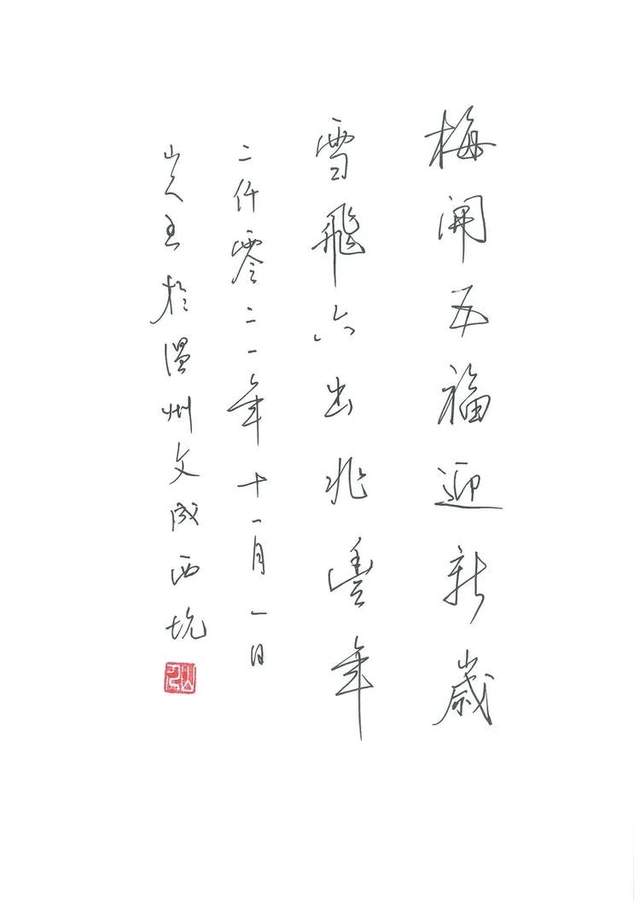 梅開五福迎新歲
雪飛六出兆豐年
二仟零二一年十一月一日
於溫州文成西坑